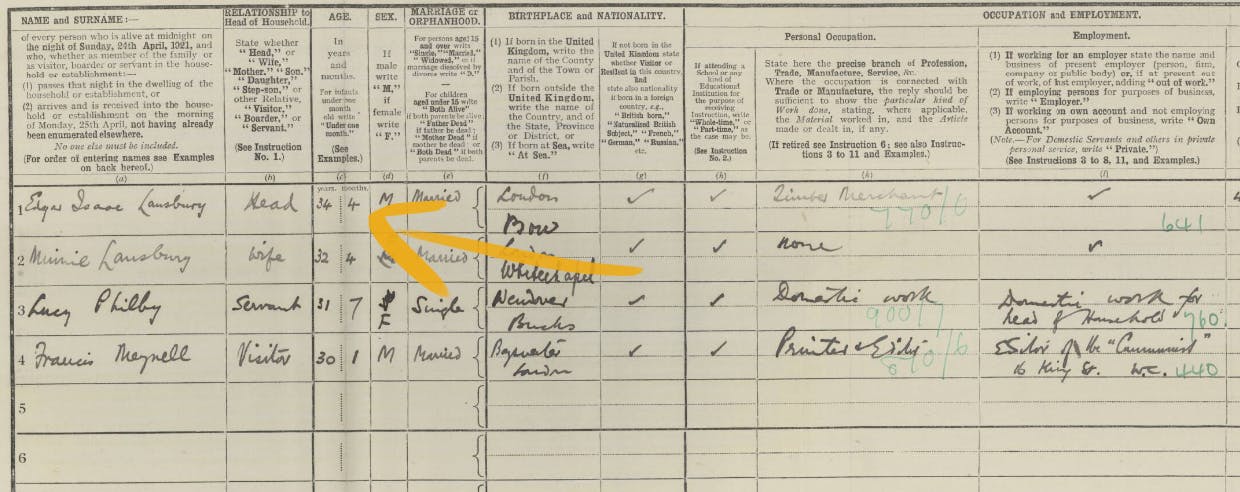 NAME and SURNAME :—
of every person who is alive at midnight on
the night of Sunday, 24th April, 1921, and
who, whether as member of the family or
as visitor, boarder or servant in the house-
hold or establishment:—
(1) passes that night in the dwelling of the
household or establishment, or
(2) arrives and is received into the house-
hold or establishment on the morning
of Monday, 25th April, not having already
been enumerated elsewhere.
No one else must be included.
(For order of entering names see Examples
on back hereof.)
(a)
RELATIONSHIP to
Head of Household.
State whether
"Head," or
"Wife,"
"Mother," "Son,"
"Daughter,"
"Step-son," or
other Relative,
"Visitor,"
"Boarder," or
"Servant."
(See Instruction
No. 1.)
(b)
AGE.
In
years
and
months.
For infants
under one
month
old write
"Under one
month."
(See
Examples.)
(c)
SEX.
If
male
write
"M,"
if
female
write
"F."
(d)
MARRIAGE or
ORPHANHOOD.
For persons aged 15
and over write
"Single," "Married,"
"Widowed," or if
marriage dissolved by
divorce write "D."
For children
aged under 15 write
"Both Alive"
if both parents be alive;
"Father Dead"
if father be dead;
"Mother Dead" if
mother be dead; or
"Both Dead" if both
parents be dead.
(e)
BIRTHPLACE and NATIONALITY.
(1) If born in the United
Kingdom, write the
name of the County
and of the Town or
Parish.
(2) If born outside the
United Kingdom,
write the name of
the Country, and of
the State, Province
or District, or
(3) If born at Sea, write
"At Sea."
(f)
If not born in the
United Kingdom state
whether Visitor or
Resident in this country,
and
state also nationality
if born in a foreign
country, e.g.,
"British born,"
"Naturalized British
Subject," "French,"
"German," "Russian,"
etc.
(g)
OCCUPATION AND EMPLOYMENT.
Personal Occupation.
If attending a
School or any
kind of
Educational
Institution for
the purpose of
receiving
Instruction, write
"Whole-time," or
"Part-time," as
the case may be.
(See Instruction
No. 2.)
(h)
State here the precise branch of Profession,
Trade, Manufacture, Service, &c.
Where the occupation is connected with
Trade or Manufacture, the reply should be
sufficient to show the particular kind of
Work done, stating, where applicable,
the Material worked in, and the Article
made or dealt in, if any.
(If retired see Instruction 6; see also Instruc-
tions 3 to 11 and Examples.)
(k)
Employment.
(1) If working for an employer state the name and
business of present employer (person, firm,
company or public body) or, if at present out
of work, of last employer, adding "out of work."
(2) If employing persons for purposes of business,
write "Employer."
(3) If working on own account and not employing
persons for purposes of business, write "Own
Account."
(Note.—For Domestic Servants and others in private
personal service, write "Private.")
(See Instructions 3 to 8, 11, and Examples.)
(l)
years. months.
1 Edgar Isaac Lansbury Head 34 4 M Married London ✓ ✓ Timber Merchant ✓ 4
Bow 770/0 641
2 Minnie Lansbury Wife 32 4 Married London ✓ ✓ none ✓
Whitechapel
3 Lucy Philby Servant 31 7 F Single Wendover ✓ ✓ Domestic work Domestic work for
Bucks 900/7 head of Household 760
4 Francis Meynell Visitor 30 1 M Married Bayswater ✓ ✓ Printer & Editor Editor of the "Communist"
London 16 King St. W.C. 440
5
6